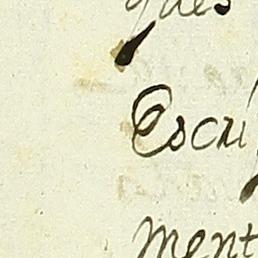 ques
Escri
ment